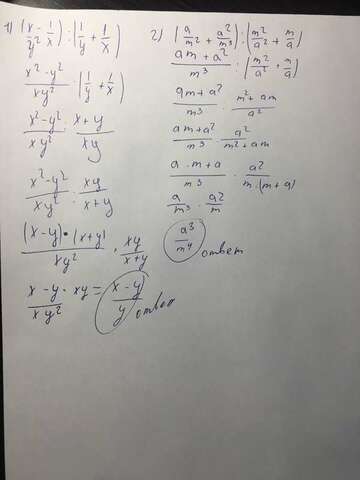 1) (x/y² - 1/x) : (1/y + 1/x)
x² - y²/xy² : (1/y + 1/x)
x² - y²/xy² : x + y/xy
x² - y²/xy² · xy/x + y
(x - y) · (x + y)/xy² · xy/x + y
x - y/xy² · xy = x - y/y ответ
2) (a/m² + a²/m³) : (m²/a² + m/a)
am + a²/m³ : (m²/a² + m/a)
am + a²/m³ : m² + am/a²
am + a²/m³ · a²/m² + am
a · m + a/m³ · a²/m · (m + a)
a/m³ · a²/m
a³/m⁴ ответ